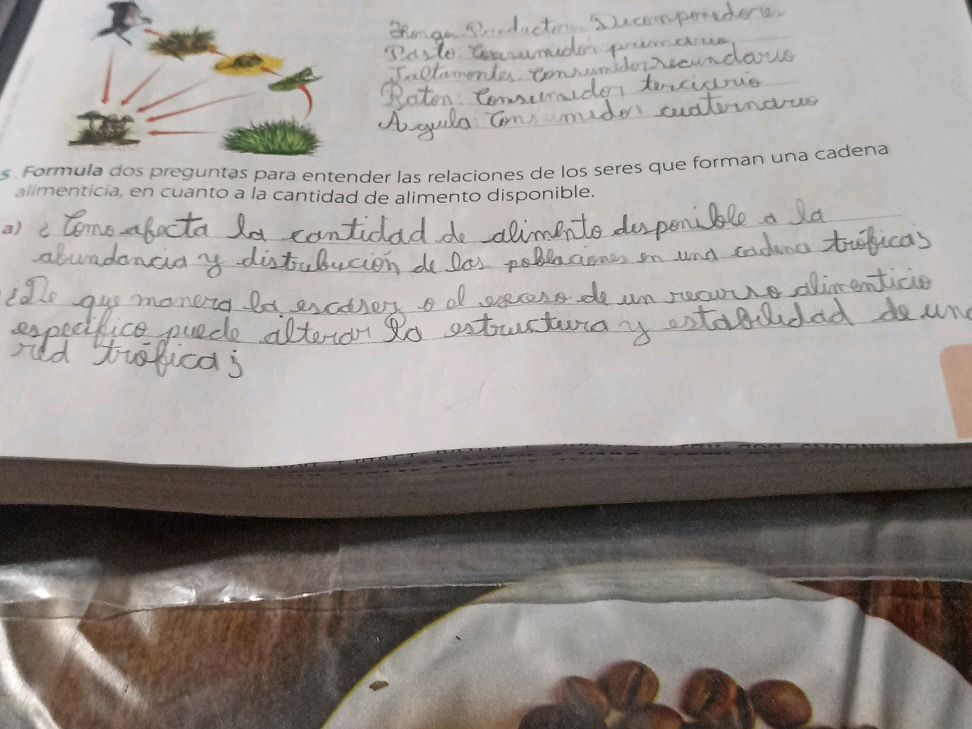 Hongo: Productores Decomponedores
Pasto: Consumidor primario
Saltamontes: Consumidor secundario
Raton: Consumidor terciario
Aguila: Consumidor cuaternario
5. Formula dos preguntas para entender las relaciones de los seres que forman una cadena
alimenticia, en cuanto a la cantidad de alimento disponible.
a) ¿Como afecta la cantidad de alimento disponible a la
abundancia y distribución de las poblaciones en una cadena trófica?
¿De que manera la escaser o el exceso de un recurso alimenticio
específico puede alterar la estructura y estabilidad de una
red trófica?